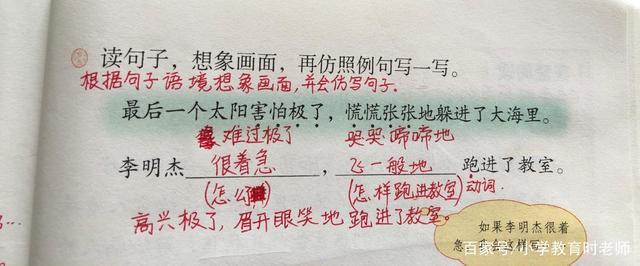 读句子，想象画面，再仿照例句写一写。
根据句子语境想象画面，并会仿写句子.
最后一个太阳害怕极了，慌慌张张地躲进了大海里。
难过极了 哭哭啼啼地
李明杰 很着急 ， 飞一般地 跑进了教室。
(怎么 ) (怎样跑进教室) 动词.
高兴极了，眉开眼笑地 跑进了教室。
如果李明杰很着
急
百家号/小学教育时老师